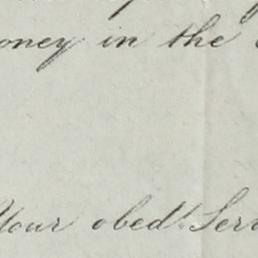 oney in the
Your obedt. Serv